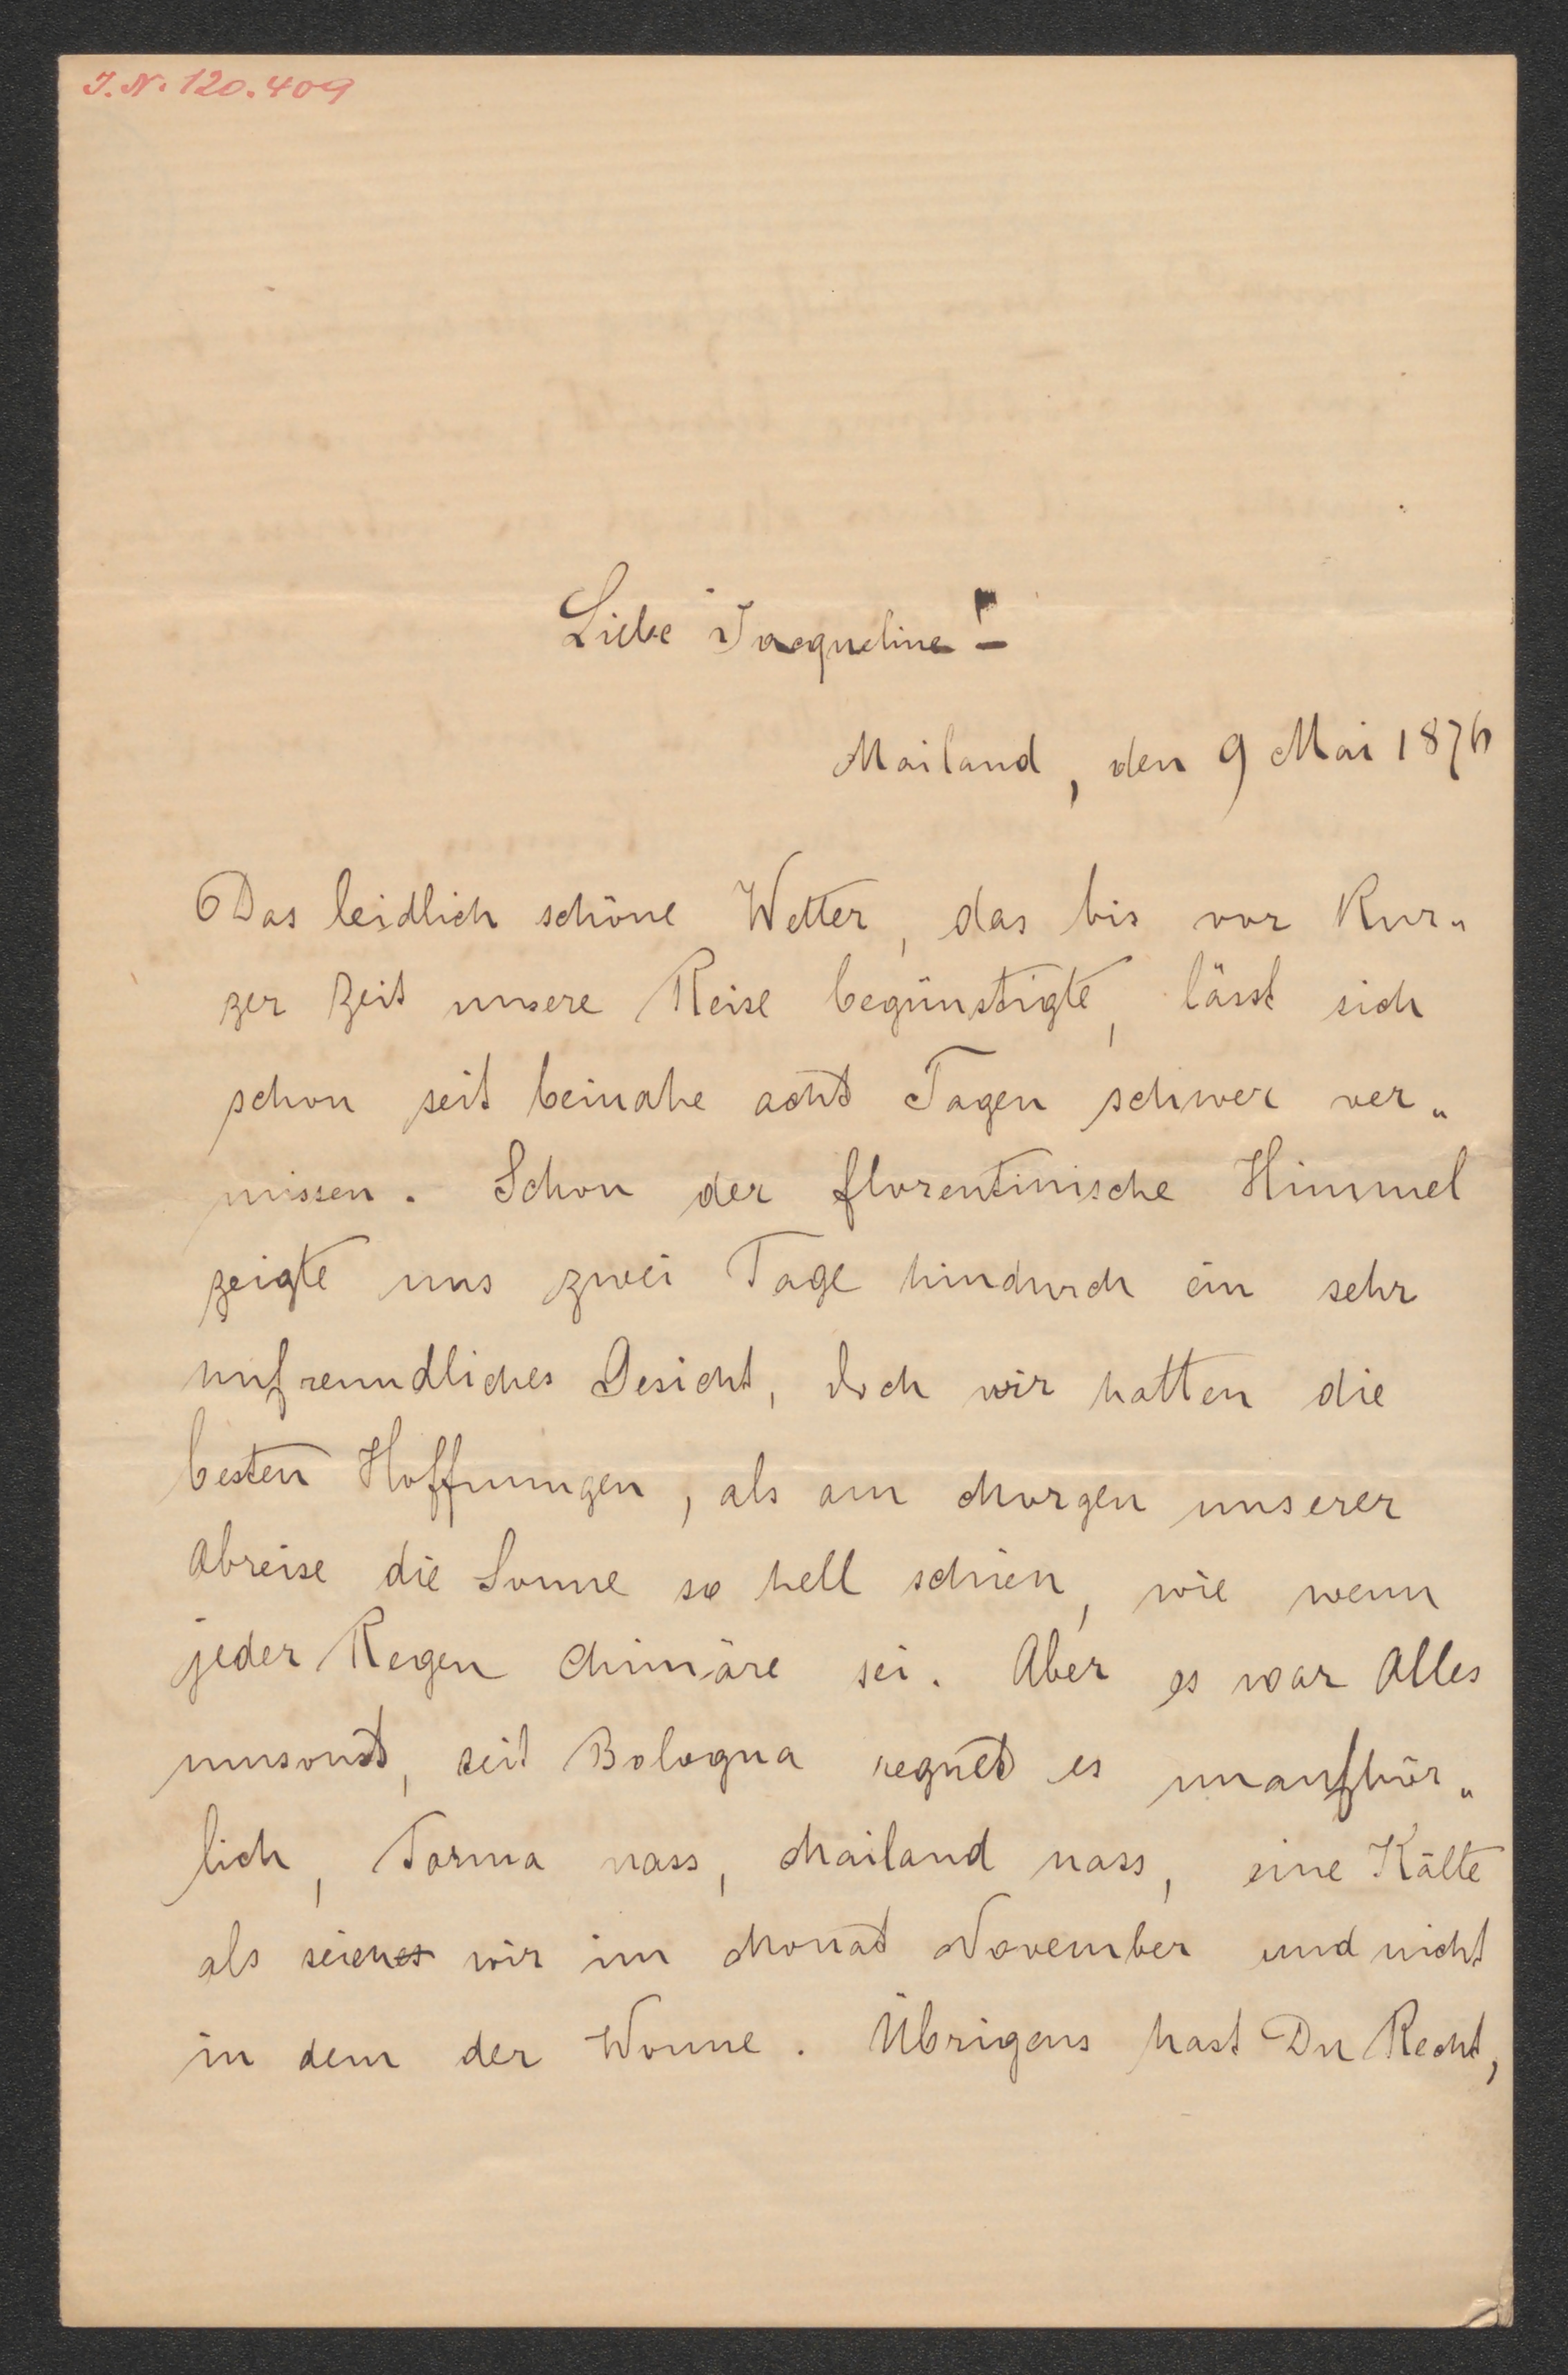 J. N. 120.409
Liebe Jacqueline! –
Mailand, den 9 Mai 1876
Das leidlich schöne Wetter, das bis vor Kur„
zer Zeit unsere Reise begünstigte, lässt sich
schon seit beinahe acht Tagen schwer ver„
missen. Schon der florentinische Himmel
zeigte uns zwei Tage hindurch ein sehr
unfreundliches Gesicht, doch wir hatten die
besten Hoffnungen, als am Morgen unserer
Abreise die Sonne so hell schien, wie wenn
jeder Regen Chimäre sei. Aber es war Alles
umsonst, seit Bologna regnet es unaufhör„
lich, Parma nass, Mailand nass, eine Kälte
als seien wir im Monat November und nicht
in dem der Wonne. Übrigens hast Du Recht,